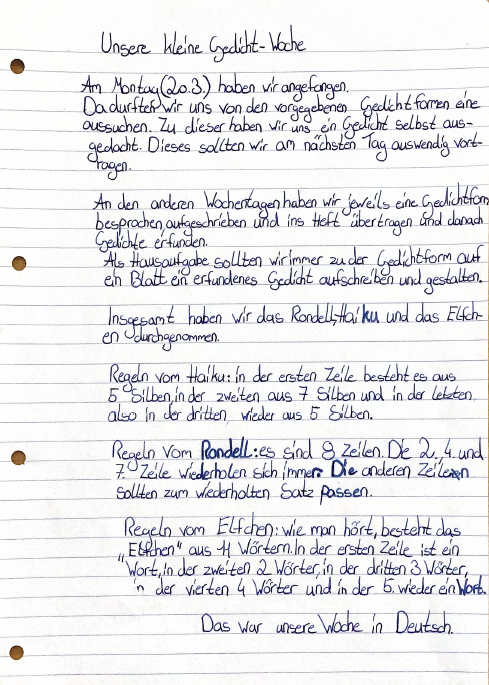 Unsere kleine Gedicht-Woche
Am Montag (20.3.) haben wir angefangen.
Da durften wir uns von den vorgegebenen Gedichtformen eine
aussuchen. Zu dieser haben wir uns ein Gedicht selbst aus-
gedacht. Dieses sollten wir am nächsten Tag auswendig vort-
ragen.
An den anderen Wochentagen haben wir jeweils eine Gedichtform
besprochen, aufgeschrieben und ins Heft übertragen und danach
Gedichte erfunden.
Als Hausaufgabe sollten wir immer zu der Gedichtform auf
ein Blatt ein erfundenes Gedicht aufschreiben und gestalten.
Insgesamt haben wir das Rondell, Haiku und das Elfch-
en durchgenommen.
Regeln vom Haiku: in der ersten Zeile besteht es aus
5 Silben, in der zweiten aus 7 Silben und in der letzten,
also in der dritten wieder aus 5 Silben.
Regeln vom Rondell: es sind 8 Zeilen. Die 2. 4. und
7. Zeile wiederholen sich immer. Die anderen Zeilen
sollten zum wiederholten Satz passen.
Regeln vom Elfchen: wie man hört, besteht das
„Elfchen" aus 11 Wörtern. In der ersten Zeile ist ein
Wort, in der zweiten 2 Wörter, in der dritten 3 Wörter,
in der vierten 4 Wörter und in der 5. wieder ein Wort.
Das war unsere Woche in Deutsch.